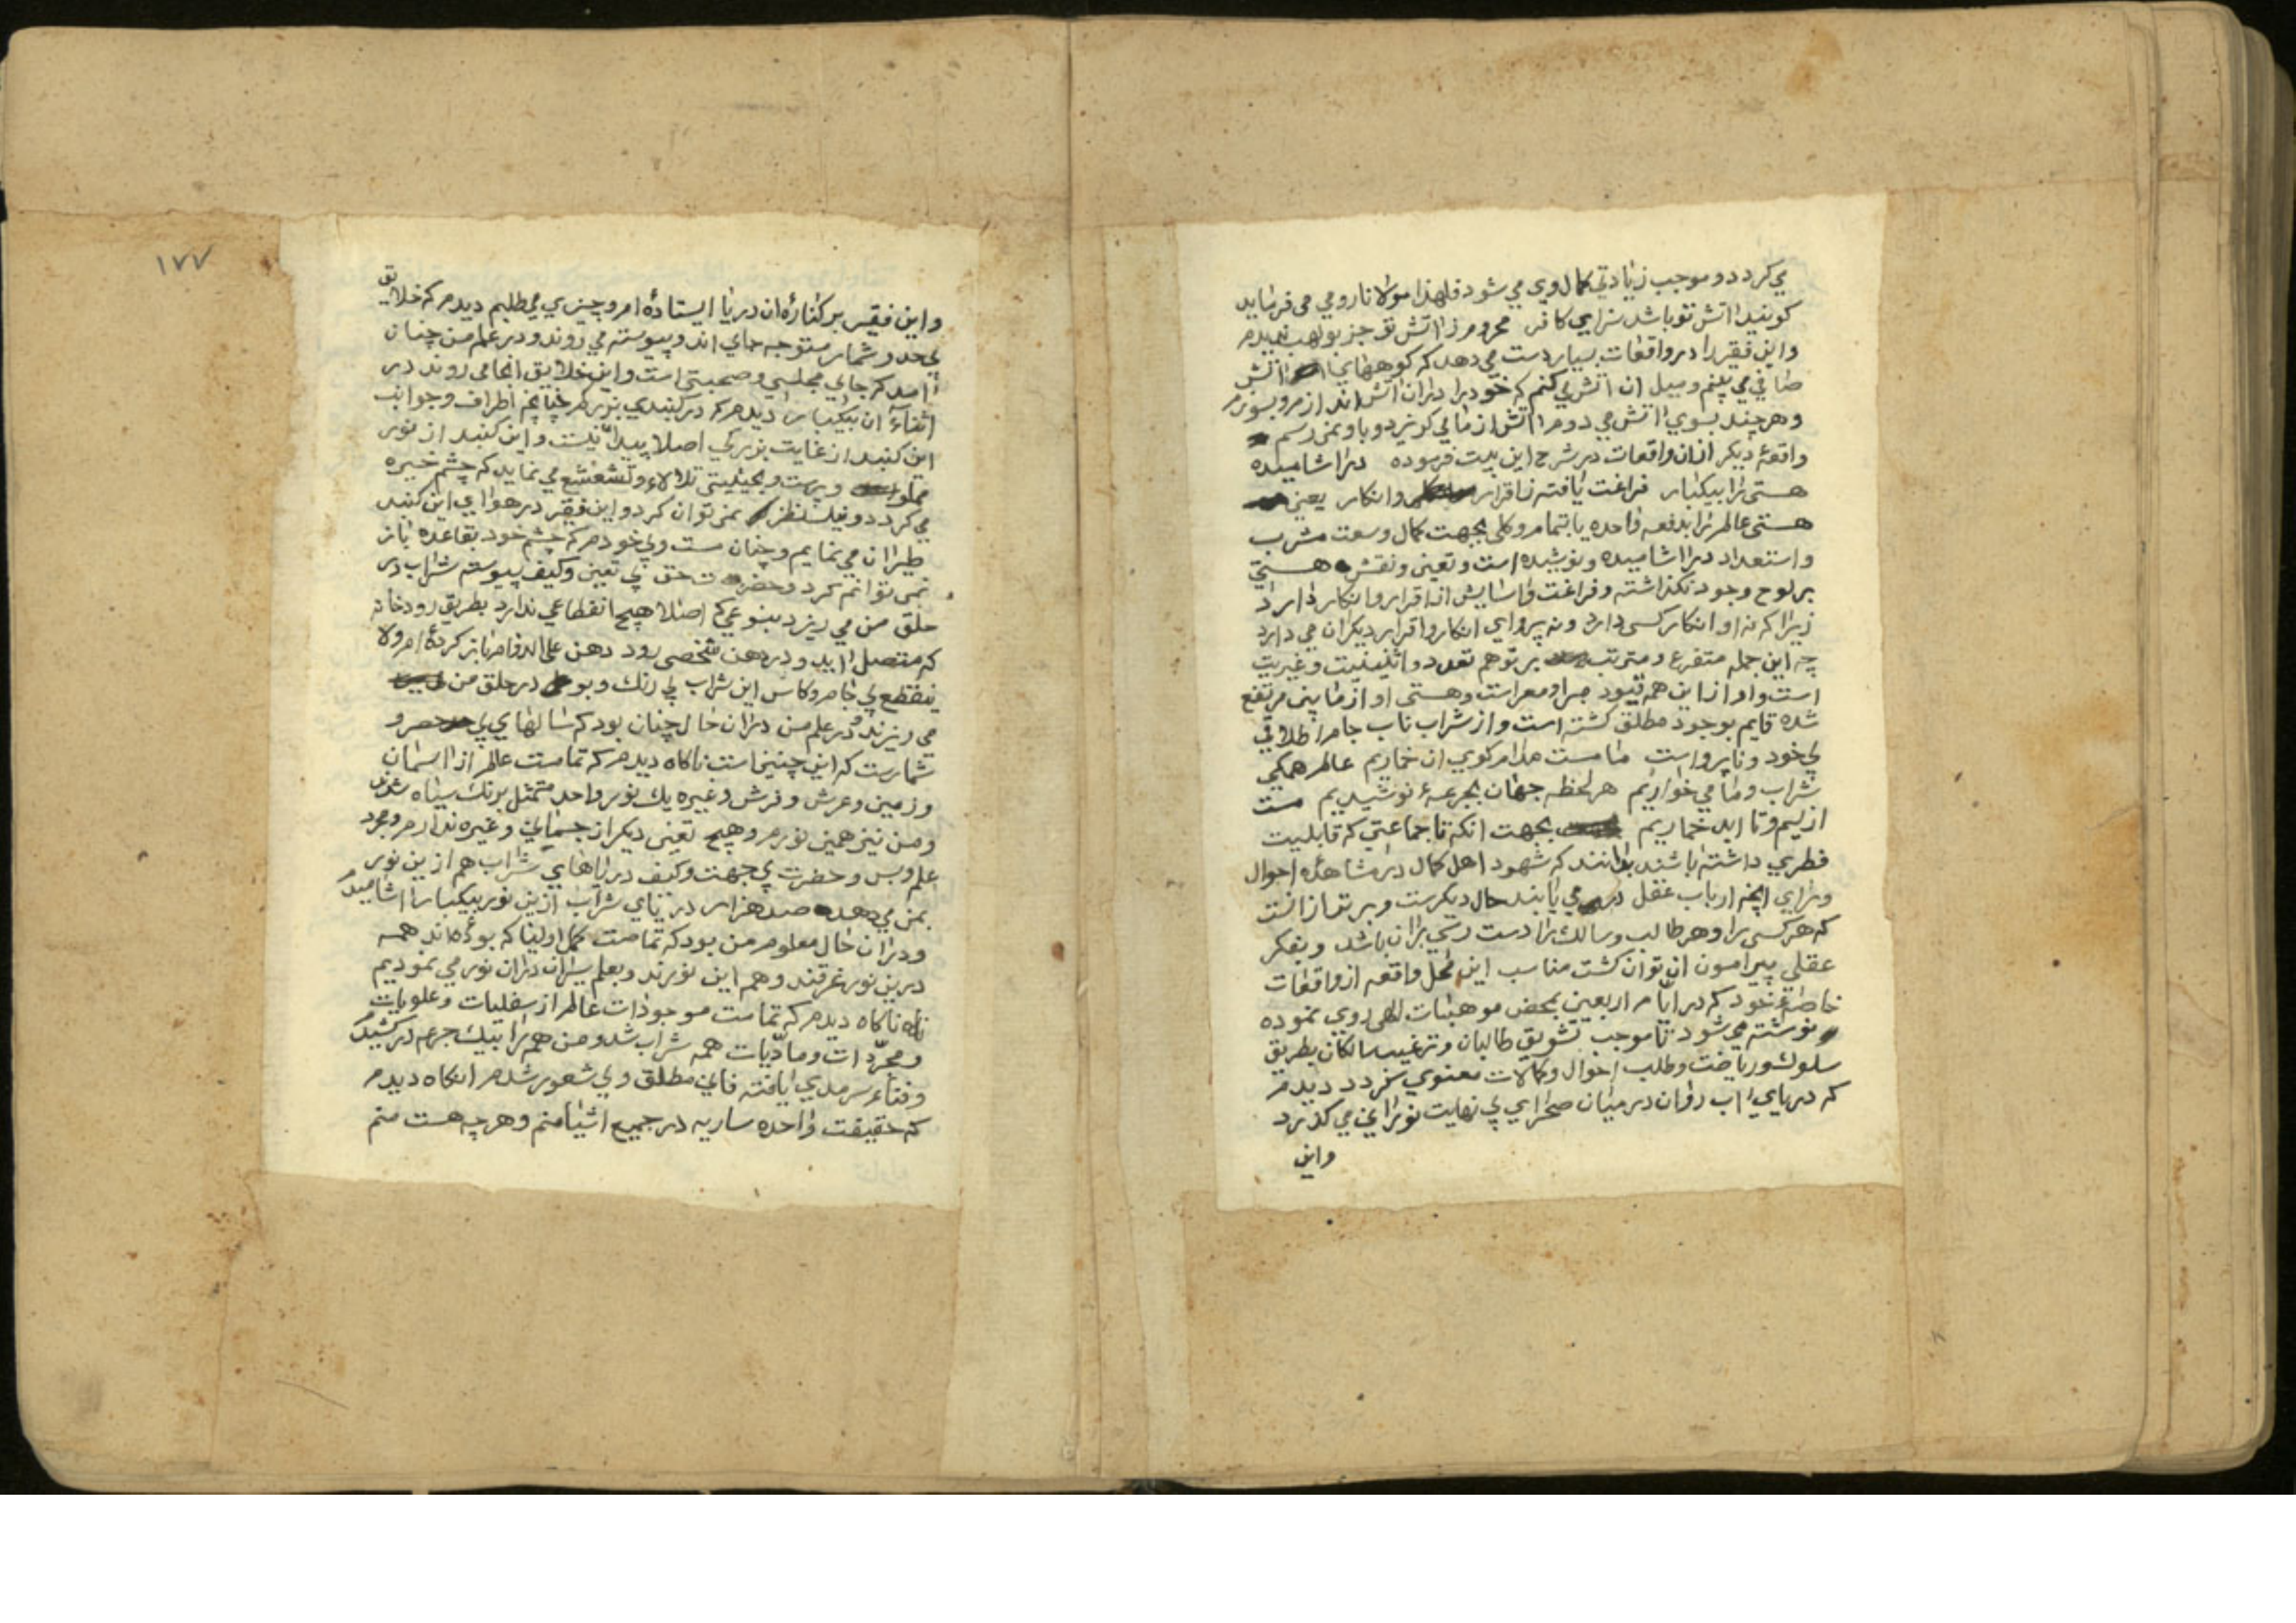 می کردد و موجب زیادتی کمال وی می شود فلهذا مولانا رومی می فرماید
کویند اتش تو باشد سزای کافر محروم ز اتش تو جز بولهب ندیدم
واین فقیر را در واقعات بسیار دست می دهد که کوههای اتش
صافی می بینم ومیل ان اتش می کنم که خود را دران اتش اندازم و بسوزم
وهر چند بسوی اتش می دوم اتش از ما می کریزد و باو نمی رسم
واقعهٔ دیکر ازان واقعات در شرح این بیت فرموده در اشامیده
هستی را بیکبار فراغت یافته ز اقرار وانکار یعنی
هستی عالم را بدفعه واحده بالتمام و کلی بجهت کمال وسعت مشرب
واستعداد در اشامیده ونوشیده است وتعین ونقش هستی
بر لوح وجود نکذاشته و فراغت واسایش از اقرار وانکار دارد
زیرا که نه او انکار کسی دارد ونه پروای انکار واقرار دیکران می دارد
چه این جمله متفرع ومترتب بر توهم تعدد واثنینیت وغیریت
است واو از این همه قیود مبرا ومعراست وهستی او از مابین مرتفع
شده قایم بوجود مطلق کشته است واز شراب ناب جام اطلاقی
بی خود وناپرواست ما مست مدام کوی ان خماریم عالم همکی
شراب وما می خواریم هر لحظه جهان بجرعهٔ نوشیدیم مست
ازلیم وتا ابد خماریم بجهت انکه تا جماعتی که قابلیت
فطری داشته باشند بدانند که شهود اهل کمال در مشاهدهٔ احوال
ورای انچه ارباب عقل در می یابند حال دیکرست وبرتر ازانست
که هر کسی را وهر طالب وسالک را دست رسی بران باشد وبفکر
عقلی پیرامون ان توان کشت مناسب این محل واقعه از واقعات
خاصهٔ خود که در ایام اربعین بمحض موهبات الهی روی نموده
نوشته می شود تا موجب تشویق طالبان وترغیب سالکان بطریق
سلوک وریاضت وطلب احوال وکمالات معنوی کردد دیدم
که دریای اب روان در میان صحرای بی نهایت نورانی می کذرد
واین
۱۷۷
واین فقیر بر کنارهٔ ان دریا ایستادهٔ ام و چیزی می طلبم دیدم که خلایق
بی حد و شمار متوجه جای اند و پیوسته می روند ودر علم من چنان
امد که جای مجلسی وصحبتی است واین خلایق انجا می روند در
اثناء ان بیکبار دیدم که در کنبدی بزرکم چنانچه اطراف وجوانب
این کنبد از غایت بزرکی اصلا پیدا نیست واین کنبد از نور
مملو وپرست وبحیثیتی تلالاء وتشعشع می نماید که چشم خیره
می کردد ونیک نظر نمی توان کرد واین فقیر در هوای این کنبد
طیران می نمایم وچنان مست وبی خودم که چشم خود بقاعده باز
نمی توانم کرد وحضرت حق بی تعین وکیف پیوسته شراب در
حلق من می ریزد بنوعی که اصلا هیچ انقطاعی ندارد بطریق رودخانه
که متصل اید ودر دهن شخصی رود دهن علی الدوام باز کردهٔ ام ولا
ینقطع بی جام وکاس این شراب بی رنک وبو در حلق من
می ریزند ودر علم من دران حال چنان بود که سالهای بی حصر و
شمارست که این چنین است ناکاه دیدم که تمامت عالم از اسمان
وزمین وعرش وفرش وغیره یک نور واحد متمثل برنک سیاه شدند
ومن نیز همین نورم و هیچ تعینی دیکر از جسمانی وغیره ندارم ومجرد
علم وبس وحضرت بی جهت وکیف دریاهای شراب هم ازین نور
بمن می دهد صد هزار دریای شراب ازین نور بیکبار اشامیدم
ودران حال معلوم من بود که تمامت کمل اولیا که بوده اند همه
درین نور غرقند وهم این نورند وبعلم سیران دران نور می نمودیم
ناکاه دیدم که تمامت موجودات عالم از سفلیات وعلویات
ومجردات ومادیات همه شراب شد ومن همه را بیک جرعه در کشیدم
وفناء سرمدی یافته فانی مطلق وبی شعور شدم انکاه دیدم
که حقیقت واحده ساریه در جمیع اشیا منم وهر چه هست منم